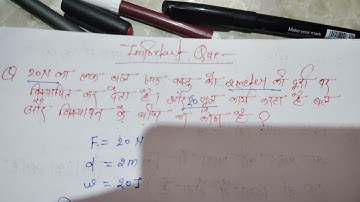 Important Que-
Q 20N का एक बल एक वस्तु को 2 meter की दूरी पर
विस्थापित कर देता है। और 20 जूल कार्य करता है बल
और विस्थापन के बीच का कोण है ?
F = 20 N
d = 2m
w = 20J